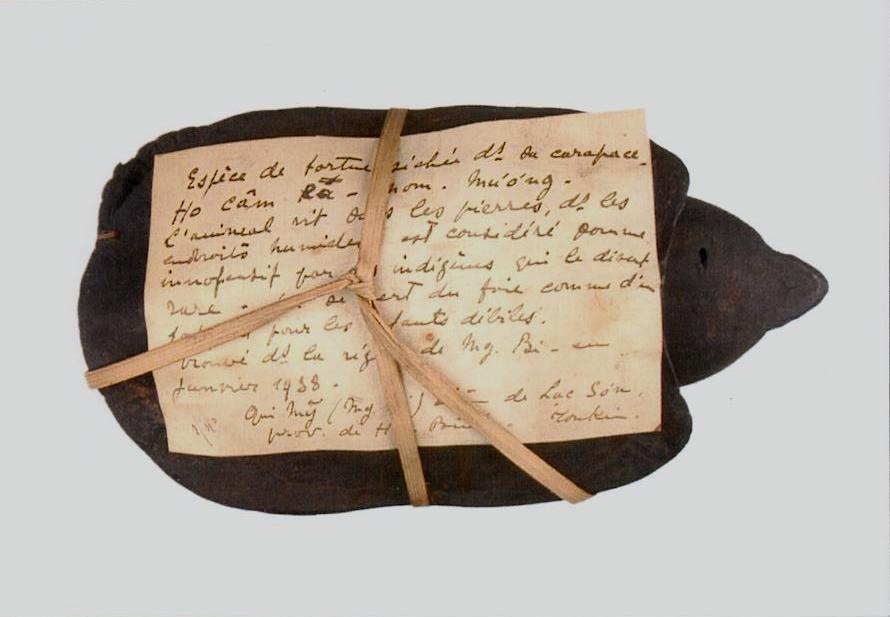 Espèce de tortue séchée ds sa carapace.
Ho câm - nom. Mường -
L'animal vit dans les pierres, ds les
endroits humides est considéré comme
innofensif par indigènes qui le disent
rare - se sert du foie comme d'un
pour les enfants débiles.
trouvé ds la rég de Mg. Bi - en
Janvier 1938 -
Qui Mỹ (Mg. ) de Lac Sơn.
prov. de H Tonkin.